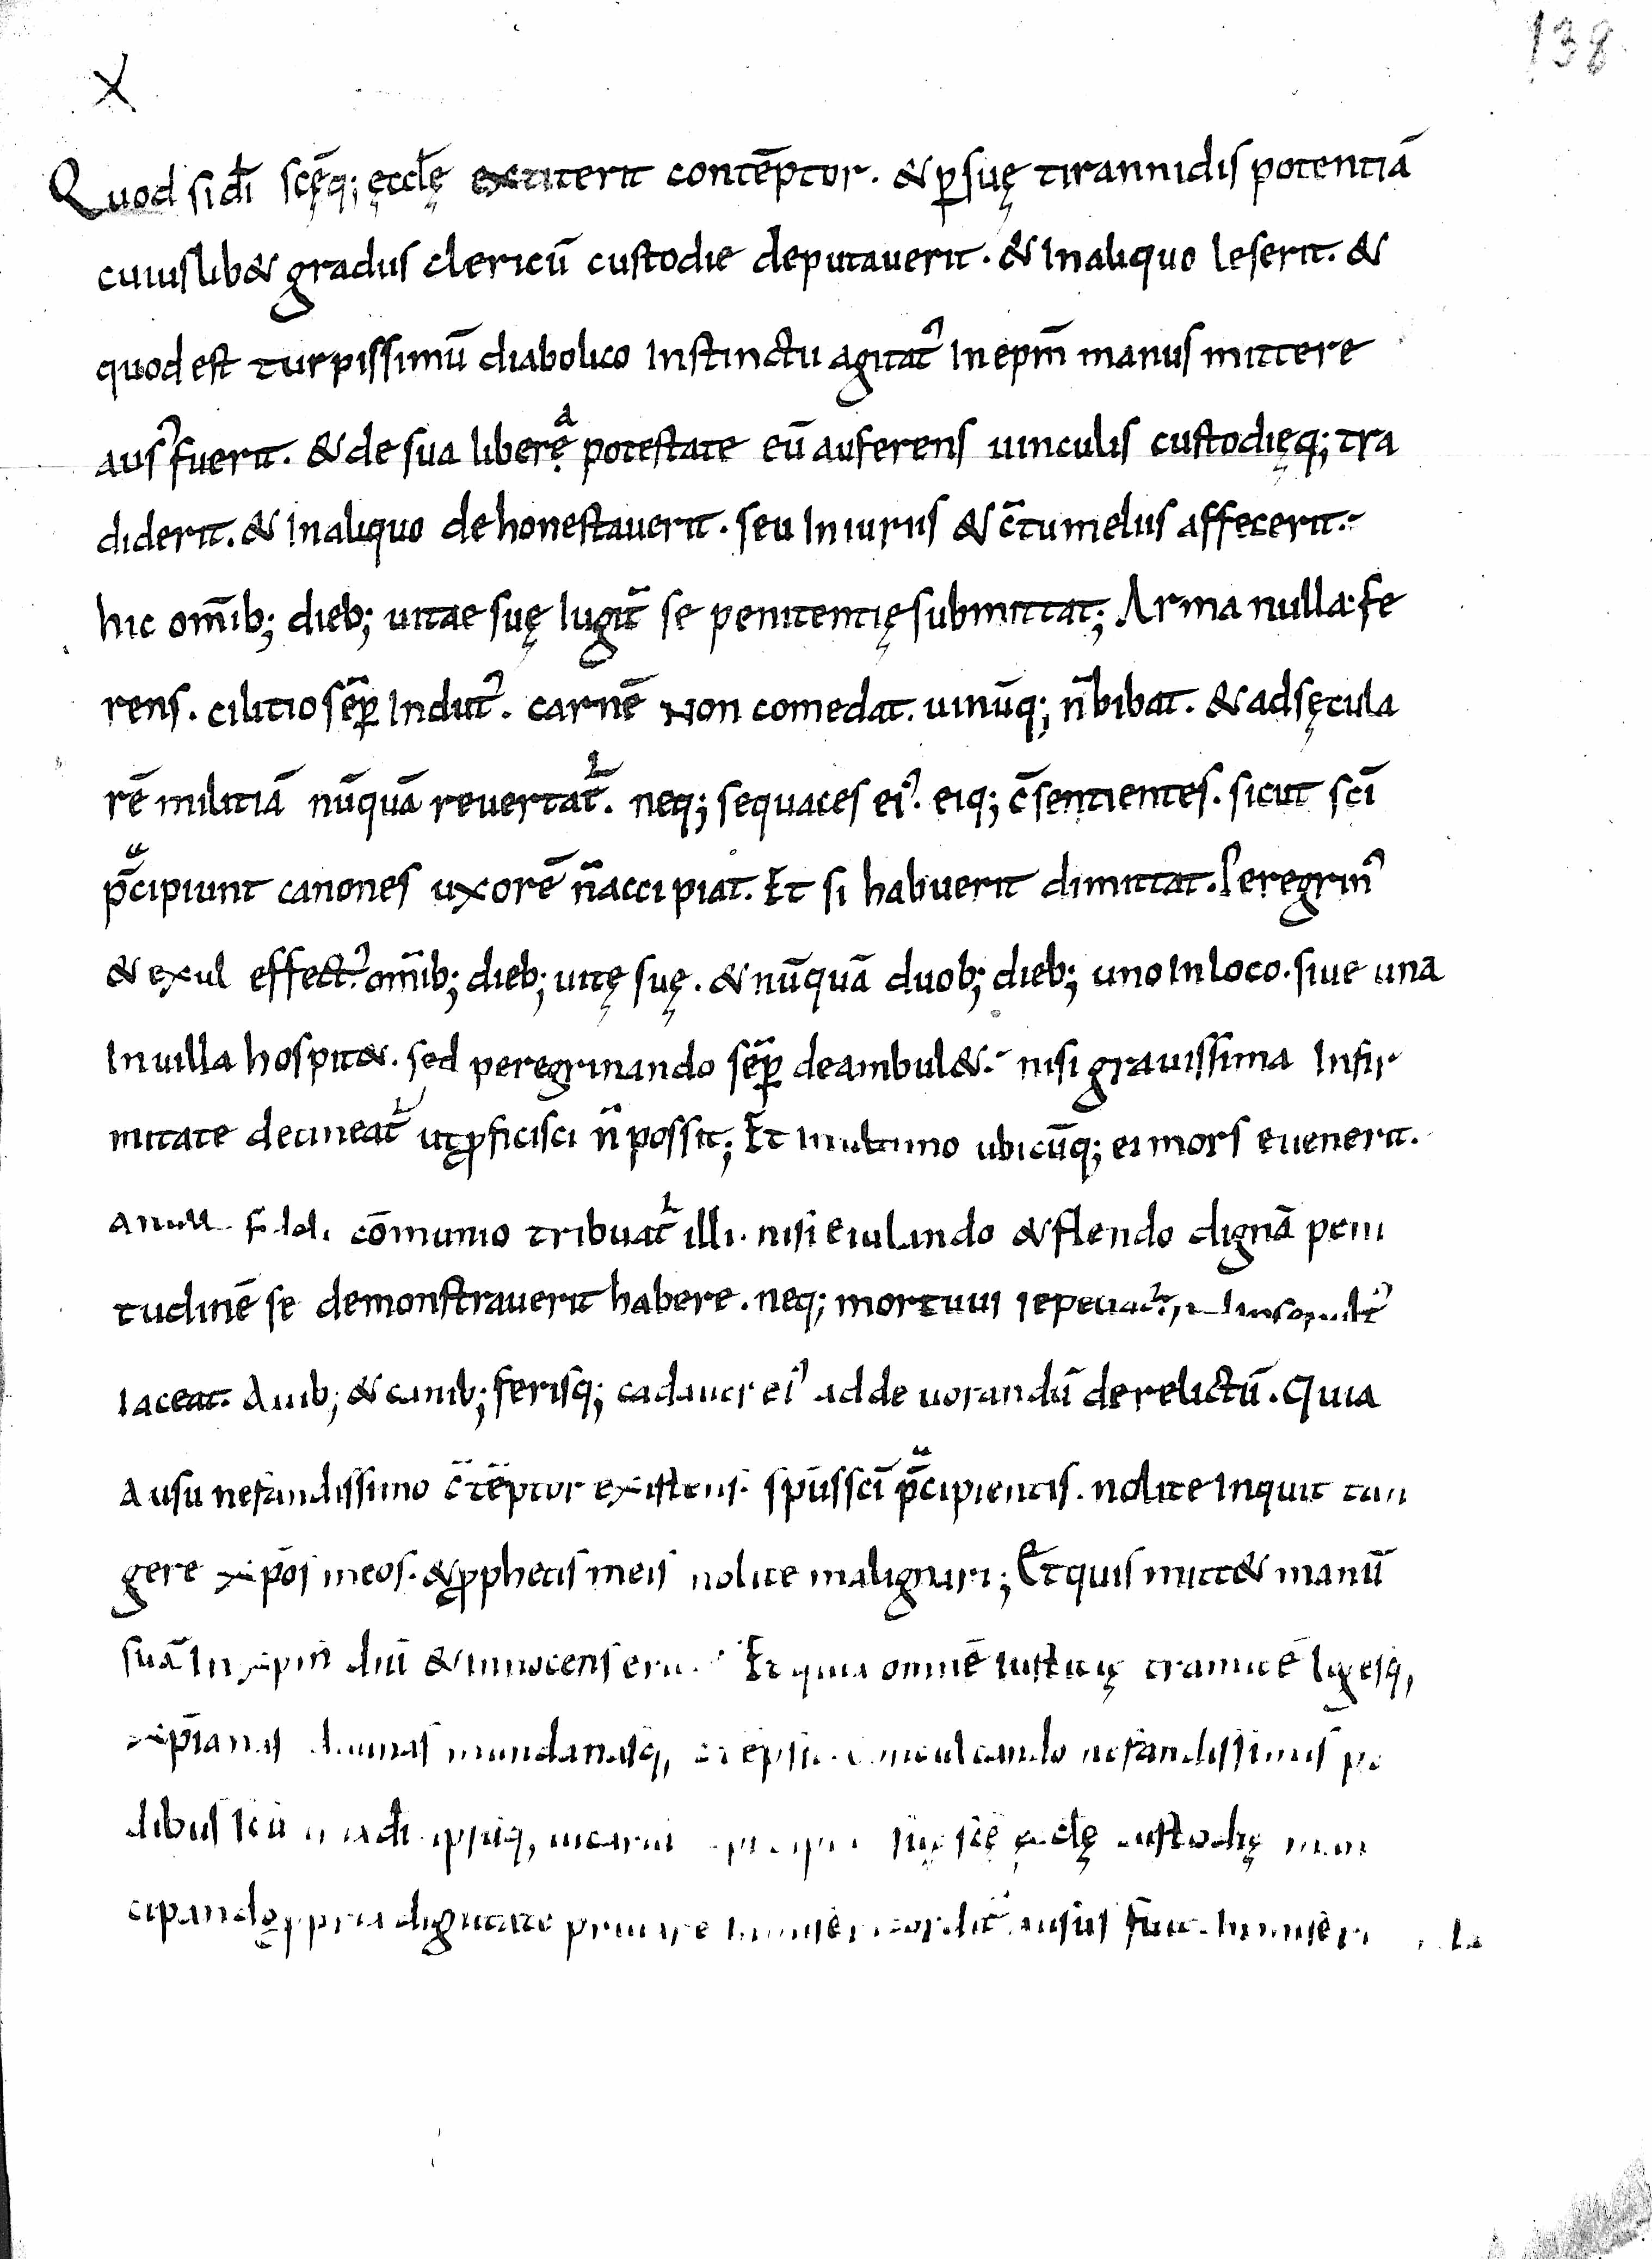 138
X
Quod si dī scęq; ęcclę extiterit contēptor. & p suę tirannidis potentiā
cuiuslib& gradus clericū custodie deputauerit. & in aliquo leserit. &
quod est turpissimū diabolico instinctu agitatʾ in epm̄ manus mittere
ausʾ fuerit. & de sua liberẹa potestate eū auferens uinculis custodięq; tra
diderit. & in aliquo dehonestauerit. seu iniuriis & c̄tumeliis affecerit.
hic om̄ib; dieb; uitae suę lugit̄ se penitentię submittat; Arma nulla fe
rens. cilitio sēp indutʾ. carnē non comedat. uinūq; n̄ bibat. & ad sęcula
rē militiā nūquā reuertat̄. neq; sequaces eiʾ. eiq; c̄sentientes. sicut sc̄i
p̄cipiunt canones uxorē n̄ accipiat. Et si habuerit dimittat. Peregrinʾ
& exul effectʾ om̄ib; dieb; uitę suę. & nūquā duob; dieb; uno in loco. siue una
in uilla hospit&. sed peregrinando sēp deambul&. nisi grauissima infir
mitate detineat̄ ut pficisci n̄ possit; Et in ultimo ubicūq; ei mors euenerit.
cōmunio tribuat̄ illi. nisi eiulando & flendo dignā peni
tudinē se demonstrauerit habere. neq; mortuus
iaceat. Auib; & canib; ferisq; cadauer eiʾ ad deuorandū derelictū. Quia
ausu nefandissimo c̄tēptor existens. sp̄us sc̄i p̄cipientis. nolite inquit tan
gere xp̄os meos. & pphetis meis nolite malignari; Et quis mitt& manū
suā in xp̄m dn̄i & innocens erit. Et quia omnē iustitię tramitē legesq;
xp̄ianas mundanasq; nefandissimis pe
dibus sc̄ę ęcclę custodię man
cipando ppria dignitate priuare ausus fuit.